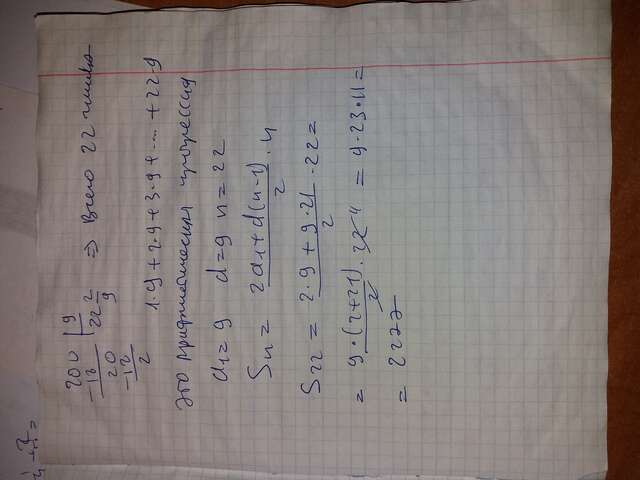 200 | 9
- 18 22 2/9 ⇒ Всего 22 числа
20
- 18
2
1·9 + 2·9 + 3·9 + .... + 22·9
это арифметическая прогрессия
a₁ = 9 d = 9 n = 22
Sₙ = (2a₁ + d(n-1))/2 · n
S₂₂ = (2·9 + 9·21)/2 · 22 =
= (9·(2+21))/2 · 22 11 = 9·23·11 =
= 2277